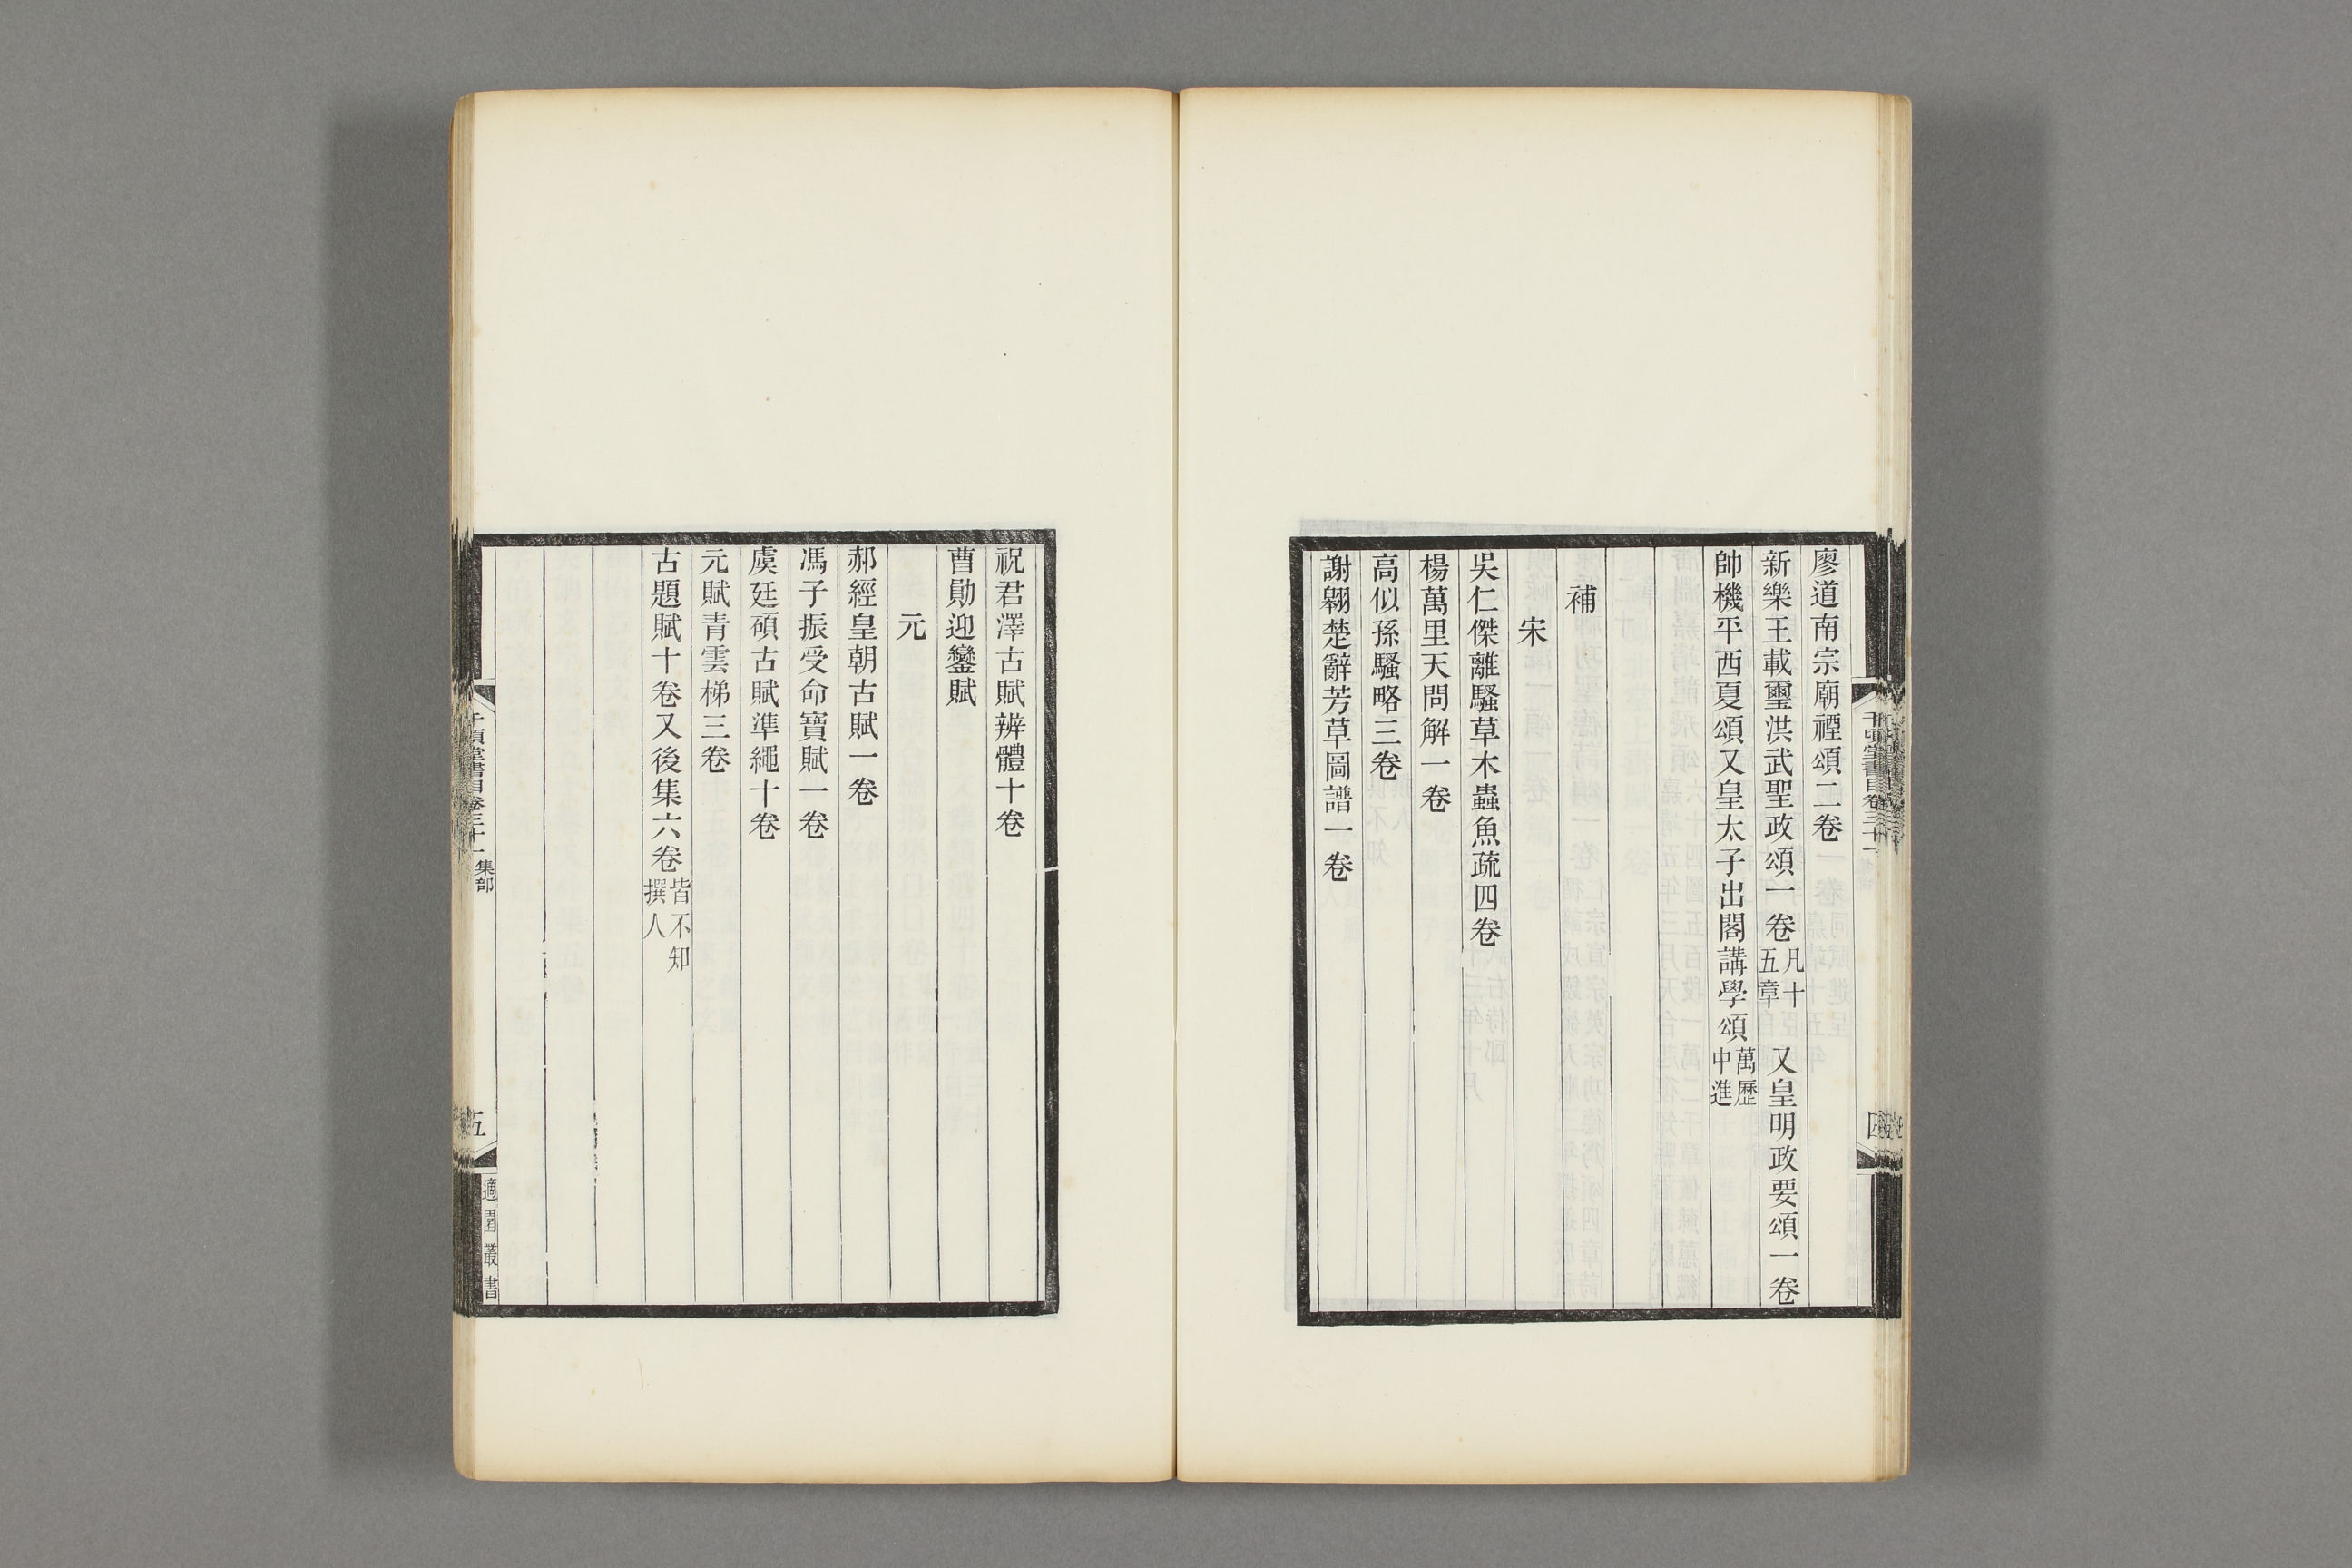 廖道南宗廟禋頌二卷
新樂王載璽洪武聖政頌一卷凡十五章 又皇明政要頌一卷
帥機平西夏頌又皇太子出閣講學頌萬歷中進
補
宋
吳仁傑離騷草木蟲魚疏四卷
楊萬里天問解一卷
高似孫騷略三卷
謝翱楚辭芳草圖譜一卷
千頃堂書目卷三十一
四
祝君澤古賦辨體十卷
曹勛迎鑾賦
元
郝經皇朝古賦一卷
馮子振受命寶賦一卷
虞廷碩古賦準繩十卷
元賦青雲梯三卷
古題賦十卷又後集六卷皆不知撰人
千頃堂書目卷三十一 集部
五
適園叢書